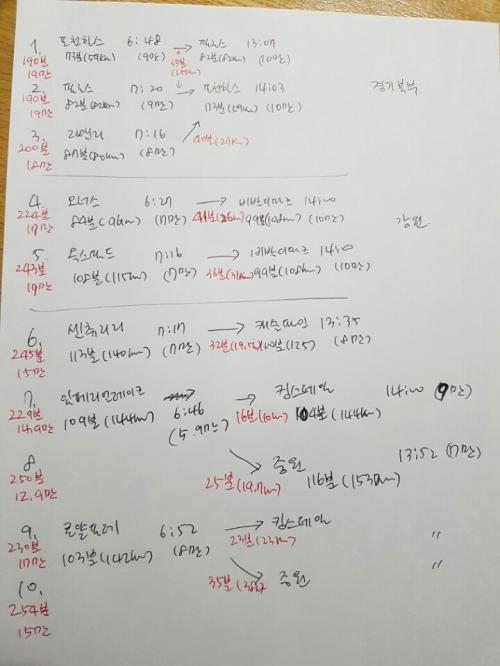 1. 포천힐스 6:48 → 피닉스 13:07
190분 73분(59km) (9만) 35분 82분(82km) (10만)
19만
2. 7:20 → 포천힐스 14:03 경기북부
190분 82분(82km) (9만) 73분(59km) (10만)
19만
3. 7:16 40분(27km)
200분 (8만)
18만
4. 오너스 6:27 → 비발디파크 14:00
224분 84분(96km) (7만) 99분(108km) (10만) 강원
17만
5. 7:16 → 비발디파크 14:00
243분 108분(115km) (7만) 36분(31km) 99분(108km) (10만)
6. 센추리 7:17 → 캐슬파인 13:35
245분 113분(140km) (7만) 32분 (125) (8만)
15만
7. 임페리얼레이크 → 킹스데일 14:00 (9만)
229분 109분(144km) 6:46 16분(10km) 104분(144km)
14.9만 (5.9만)
8 중원 13:52 (7만)
250분 25분(19.7km) 116분(153km)
12.9만
9. 로얄포레 6:52 → 킹스데일 "
230분 103분(142km) (8만) 23분(23km)
17만
10. 중원 "
254분 35분
15만